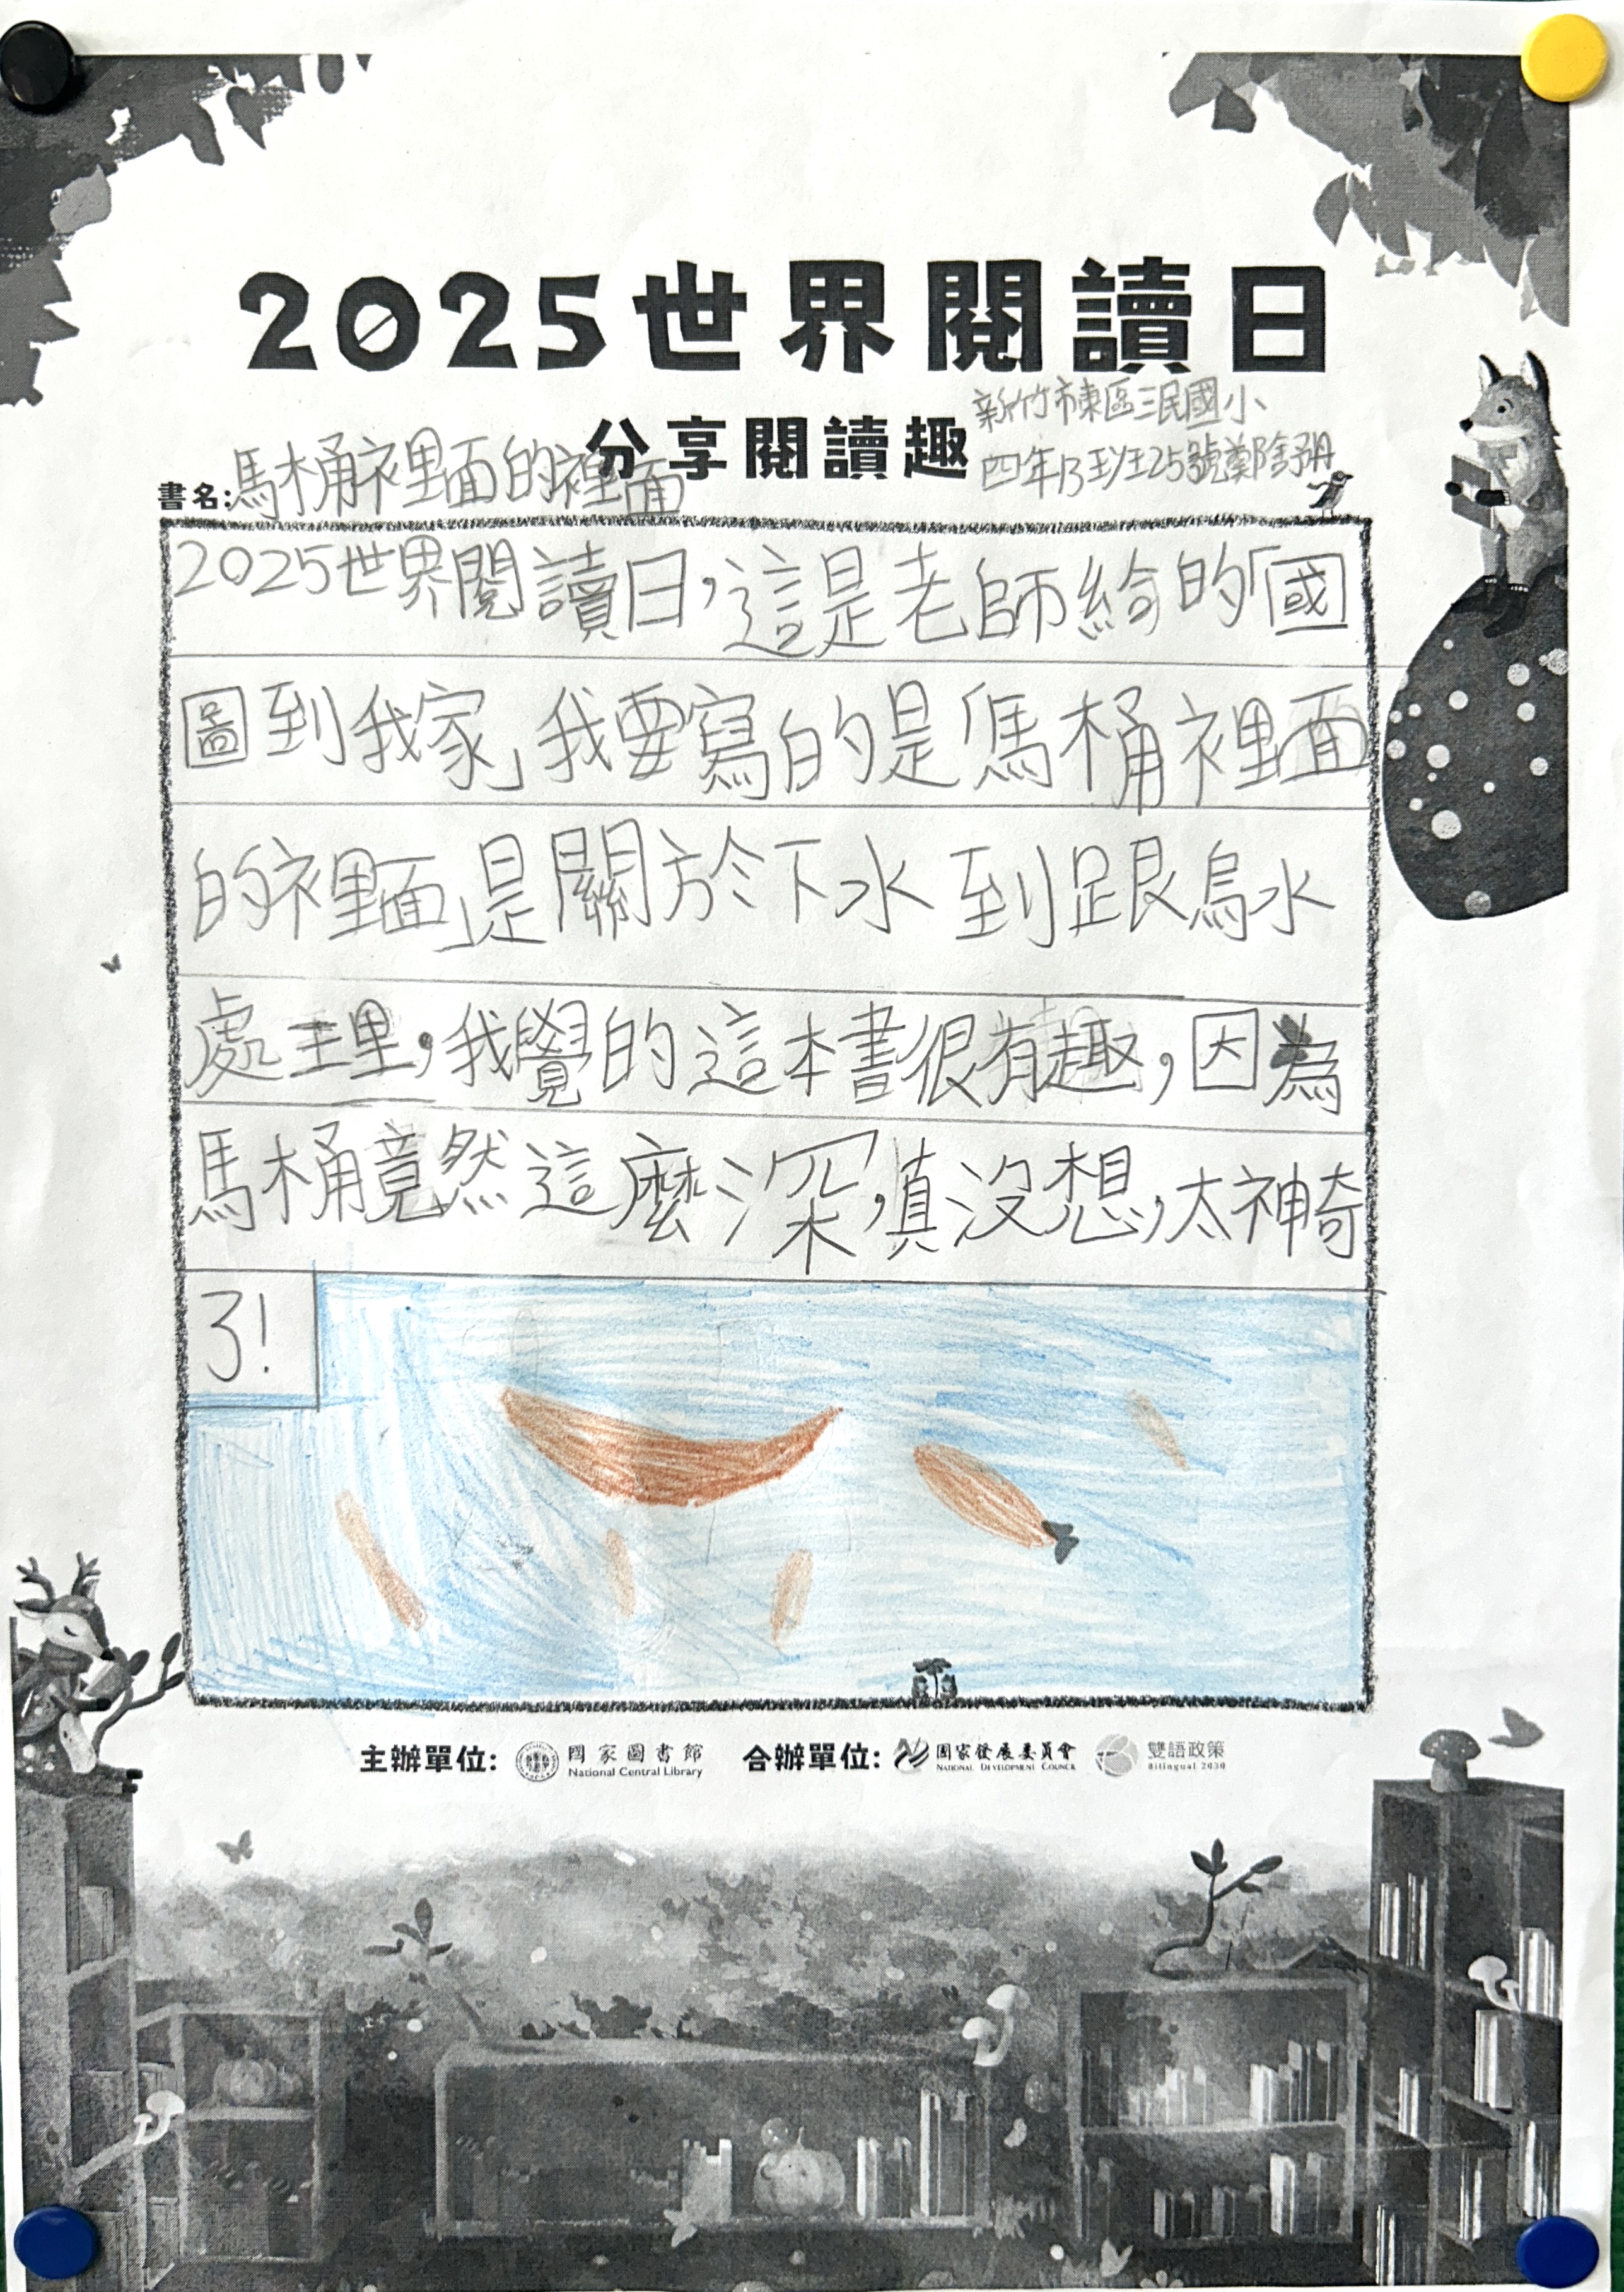 2025世界閱讀日
分享閱讀趣
新竹市東區三民國小
四年13班25號鄭舒玥
書名:馬桶裡面的裡面
2025世界閱讀日,這是老師給的「國
圖到我家」我要寫的是「馬桶裡面
的裡面」是關於下水到跟烏水
處理,我覺的這本書很有趣,因為
馬桶竟然這麼深,真沒想,太神奇
了!
主辦單位: 國家圖書館 National Central Library 合辦單位: 國家發展委員會 National Development Council 雙語政策 Bilingual 2030